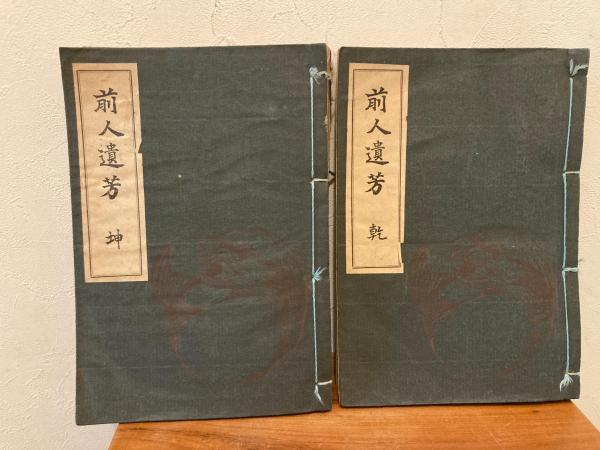 前人遺芳 乾
前人遺芳 坤